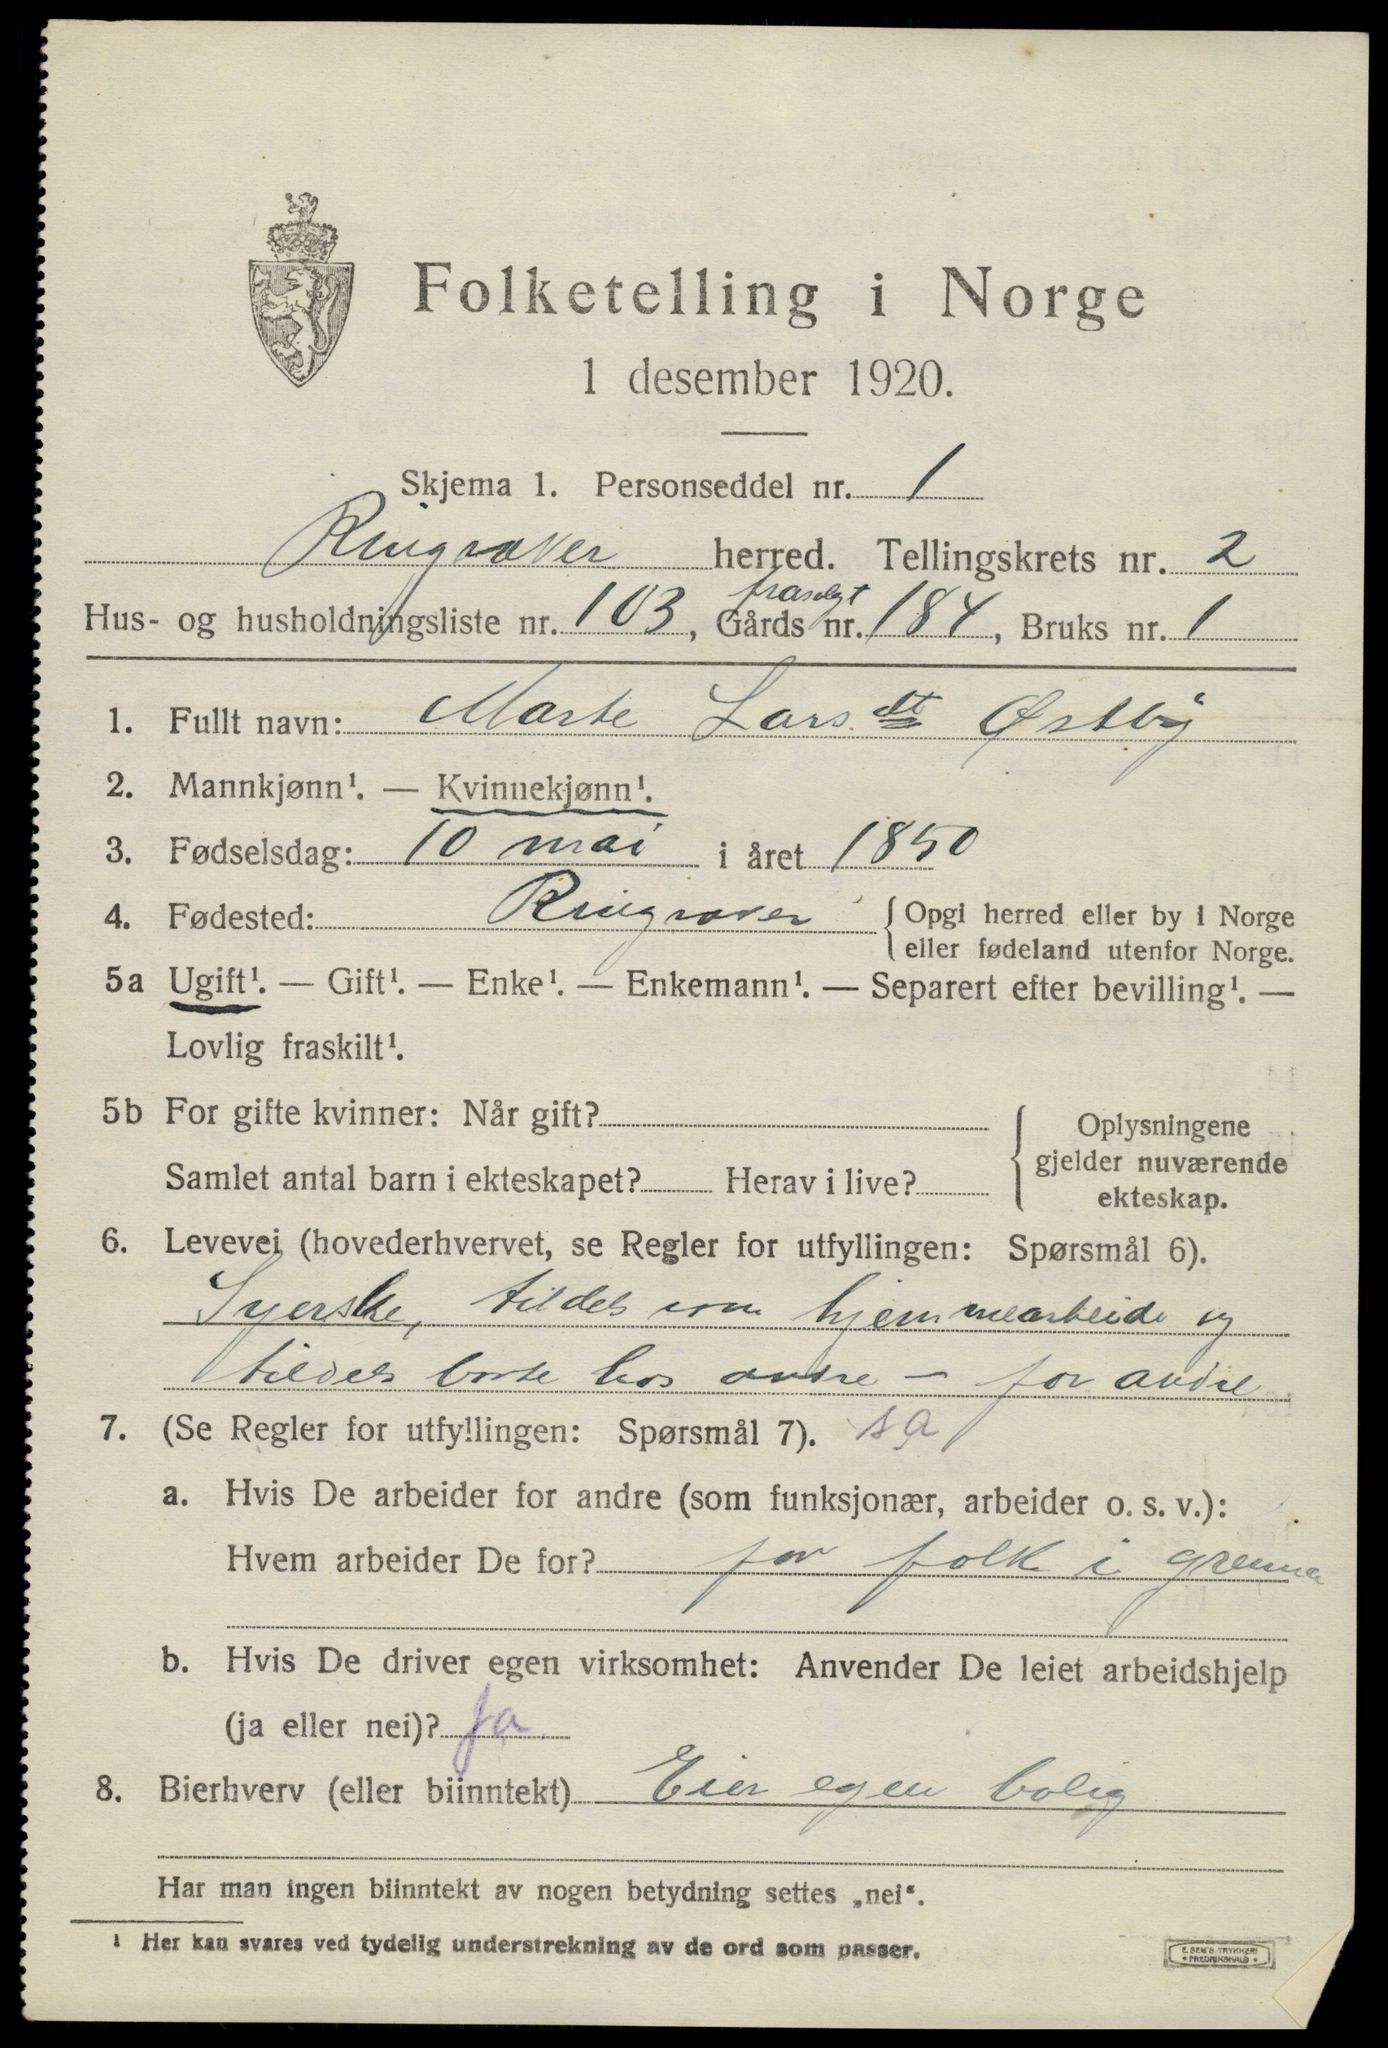 Folketelling i Norge
1 desember 1920.
Skjema 1. Personseddel nr. 1
Ringsaker herred. Tellingskrets nr. 2
frasolgt
Hus- og husholdningsliste nr. 103, Gårds nr. 184, Bruks nr. 1
1. Fullt navn: Marte Larsdt Østby
2. Mannkjønn¹. — Kvinnekjønn¹.
3. Fødselsdag: 10 mai i året 1850
4. Fødested: Ringsaker {Opgi herred eller by i Norge
eller fødeland utenfor Norge.
5a Ugift¹. — Gift¹. — Enke¹. — Enkemann¹. — Separert efter bevilling¹. —
Lovlig fraskilt¹.
5b For gifte kvinner: Når gift?
Samlet antal barn i ekteskapet? Herav i live?
Oplysningene
gjelder nuværende
ekteskap.
6. Levevei (hovederhvervet, se Regler for utfyllingen: Spørsmål 6).
Syerske, tildels som hjemmearbeide og
tildels borte hos andre – for andre
7. (Se Regler for utfyllingen: Spørsmål 7). sa
a. Hvis De arbeider for andre (som funksjonær, arbeider o. s. v.):
Hvem arbeider De for? for folk i grenna
b. Hvis De driver egen virksomhet: Anvender De leiet arbeidshjelp
(ja eller nei)? ja
8. Bierhverv (eller biinntekt) Eier egen bolig
Har man ingen biinntekt av nogen betydning settes „nei“.
¹ Her kan svares ved tydelig understrekning av de ord som passer.
E. SEM'S TRYKKERI
FREDRIKSHALD